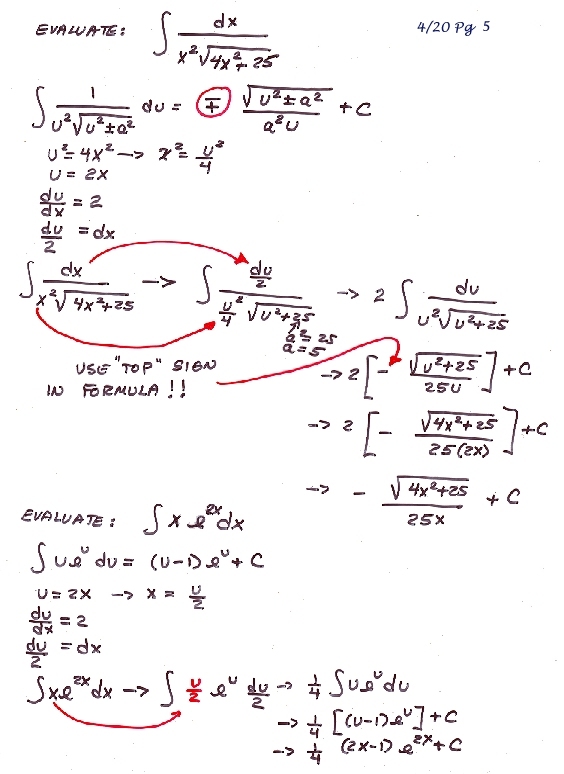 EVALUATE: ∫ dx / (x²√(4x²+25))
4/20 Pg 5
∫ 1/(u²√(u²±a²)) du = ∓ √(u²±a²)/(a²u) + C
u² = 4x² -> x² = u²/4
u = 2x
du/dx = 2
du/2 = dx
∫ dx/(x²√(4x²+25)) -> ∫ (du/2)/((u²/4)√(u²+25)) -> 2 ∫ du/(u²√(u²+25))
a² = 25
a = 5
USE "TOP" SIGN
IN FORMULA !!
-> 2 [- √(u²+25)/(25u)] + C
-> 2 [- √(4x²+25)/(25(2x))] + C
-> - √(4x²+25)/(25x) + C
EVALUATE: ∫ x e^(2x) dx
∫ u e^u du = (u-1) e^u + C
u = 2x -> x = u/2
du/dx = 2
du/2 = dx
∫ x e^(2x) dx -> ∫ u/2 e^u du/2 -> 1/4 ∫ u e^u du
-> 1/4 [(u-1) e^u] + C
-> 1/4 (2x-1) e^(2x) + C